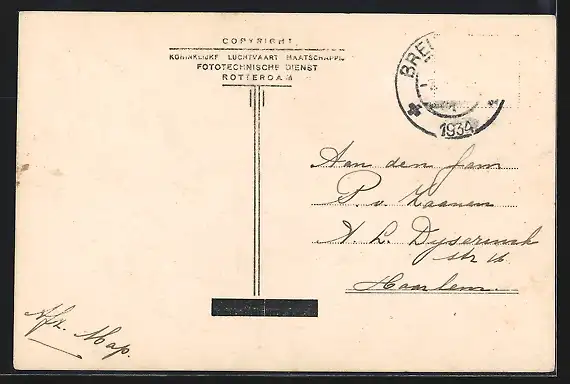 COPYRIGHT
KONINKLIJKE LUCHTVAART MAATSCHAPPIJ
FOTOTECHNISCHE DIENST
ROTTERDAM
BRE
1934
Aan den fam
P. v Zaanen
L. Dyserinck
str 16
Haarlem.
Afz. Map.